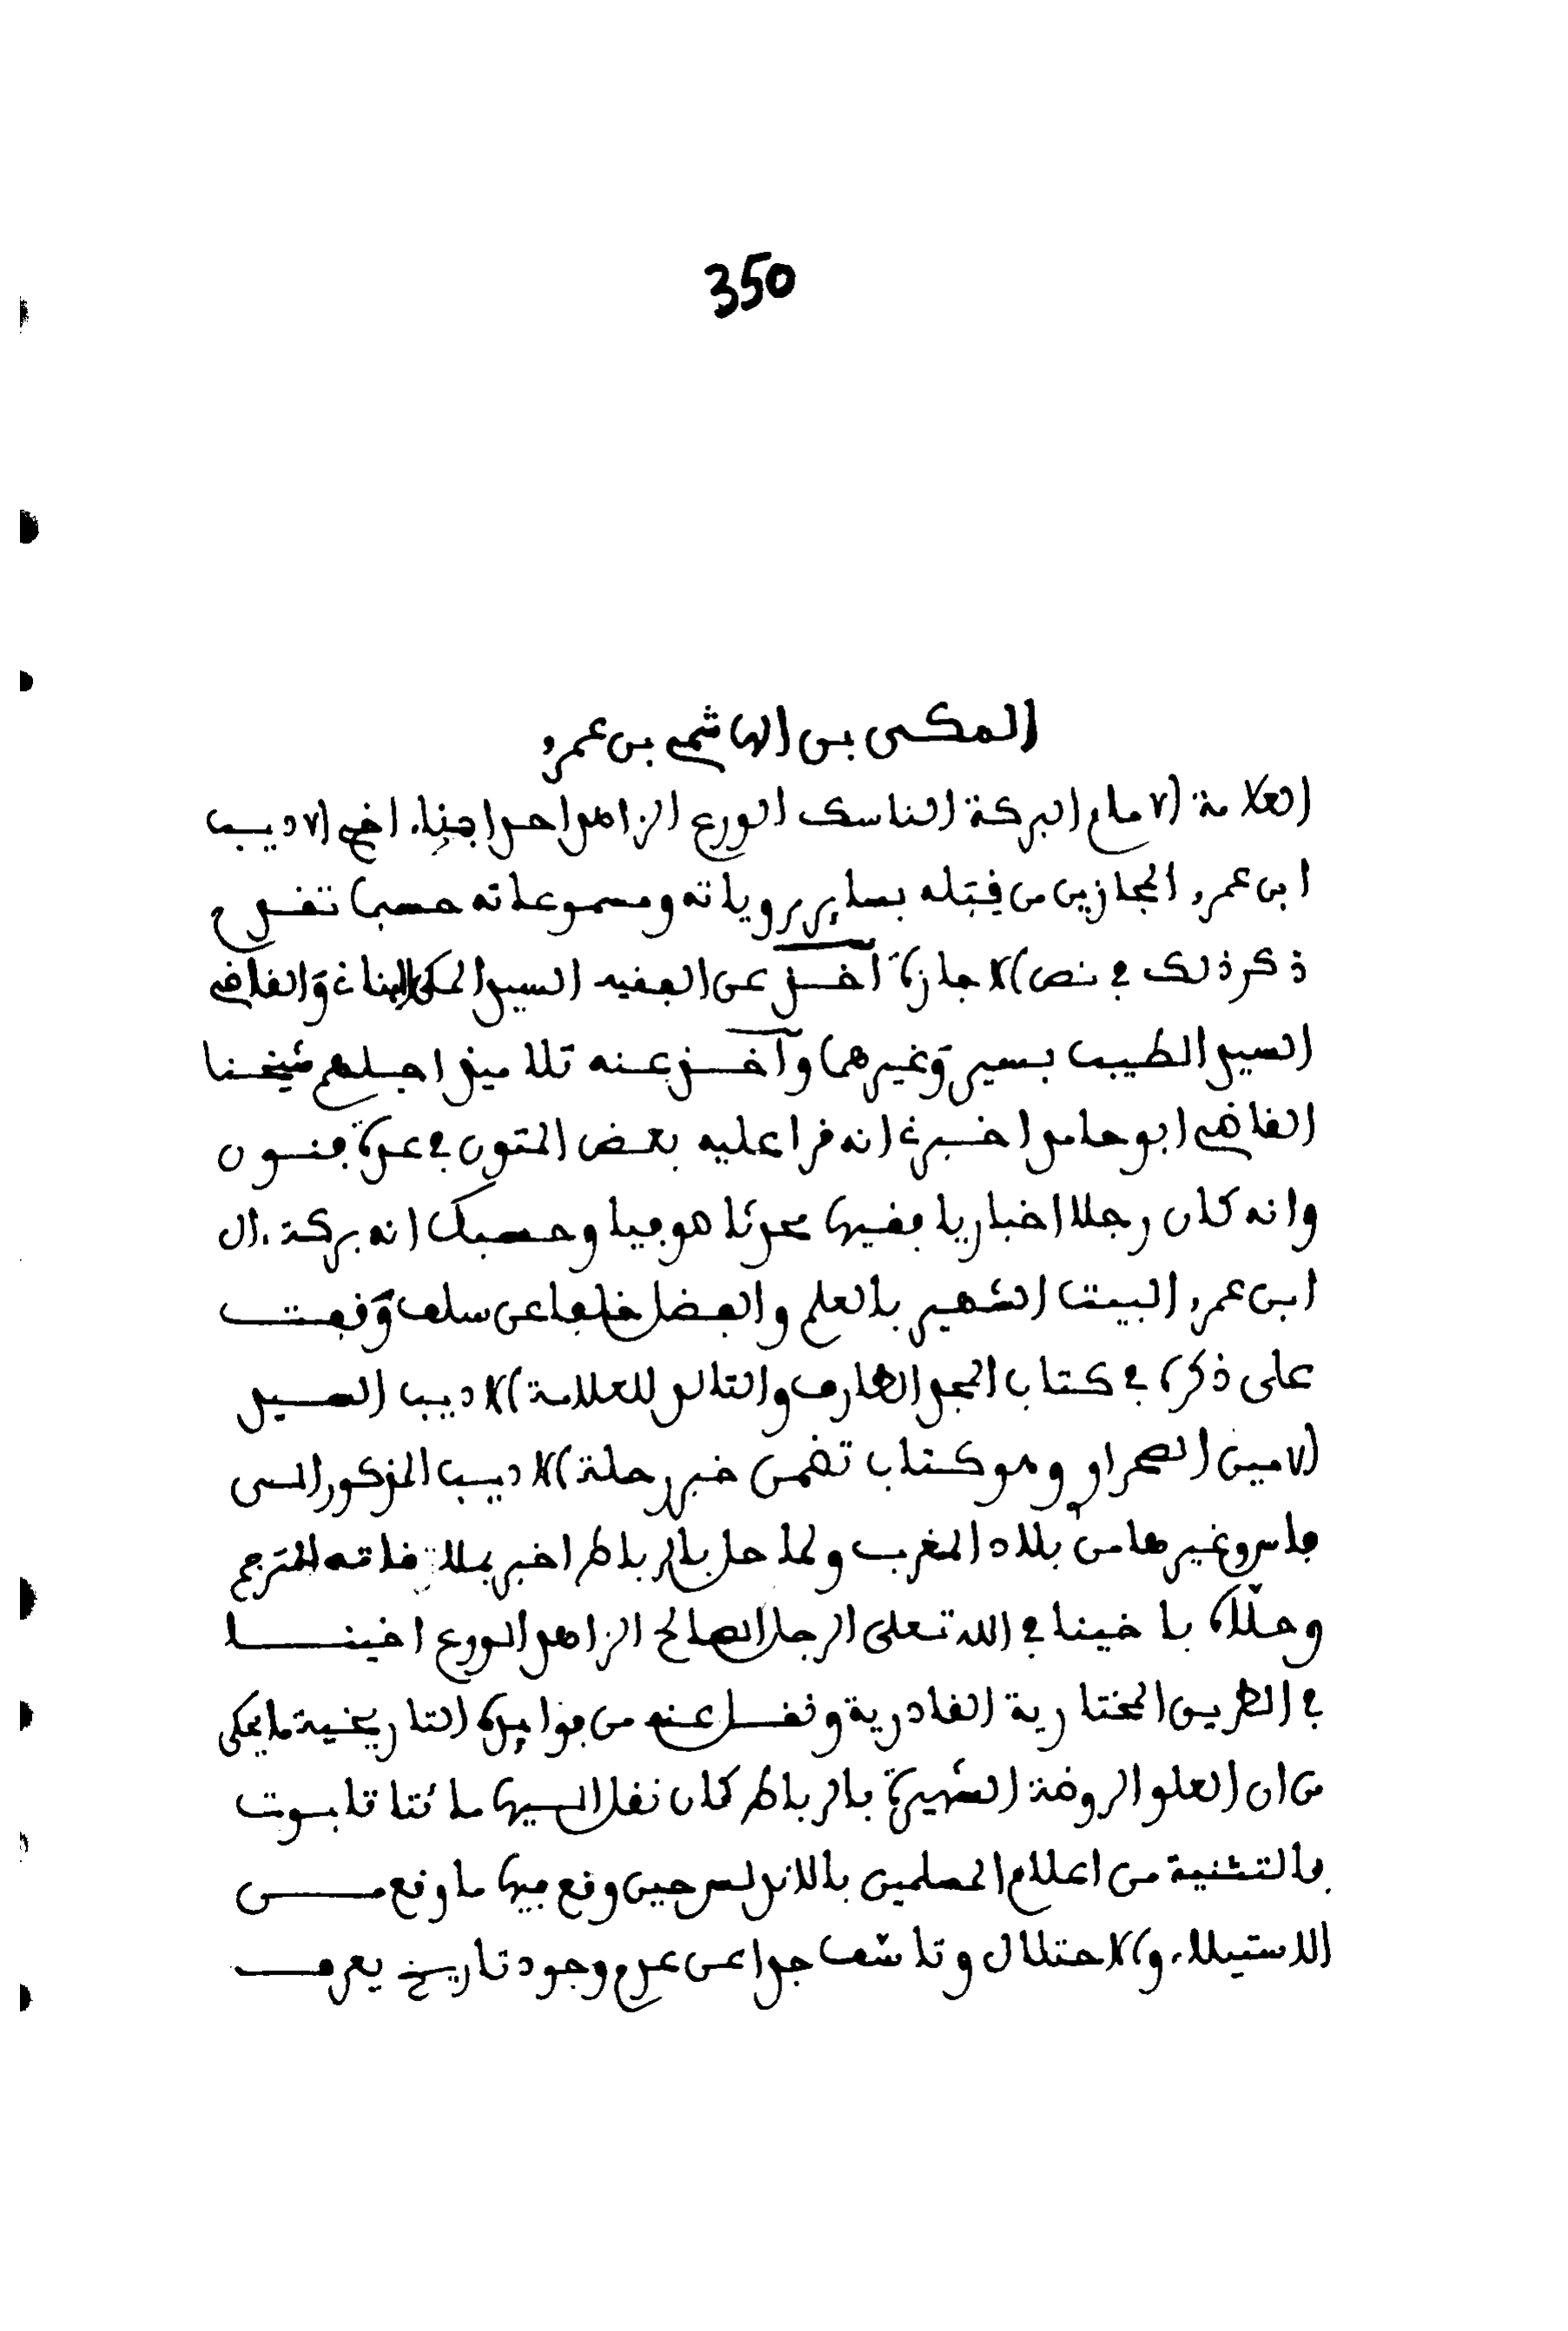 350
المكى بن الهاشمى بن عمرو
العلامة الامام البركة الناسك الورع الزاهد احد احفاد اخى الاديب
ابن عمرو المجازين من قبله بساير مروياته ومسموعاته حسبما تقدم
ذكر ذلك فى نص الاجازة اخذ عن الفقيه السيد المكى البناني والقاضى
السيد الطيب بسير وغيرهما وأخذ عنه تلاميذ اجلهم شيخنا
القاضى ابو حامد اخبرنى انه قرا عليه بعض المتون فى عدة فنون
وانه كان رجلا اخباريا فقيها محدثا صوفيا وحسبك انه بركة ءال
ابن عمرو البيت الشهير بالعلم والفضل خلفا عن سلف وقفت
على ذكره فى كتاب المجد الطارف والتالد للعلامة الاديب السيد
الامين الصحراوي وهو كتاب تضمن خبر رحلة الاديب المذكور الى
فاس وغيرها من بلاد المغرب ولما حل بالرباط اخبر بملاقاته المترجم
وحلاه باخينا فى الله تعلى الرجل الصالح الزاهد الورع اخينا
فى الطريق المختارية القادرية ونقل عنه من فوايده التاريخية ما يحكى
من ان العلو الروضة الشهيرة بالرباط كان نقل اليها مائتا تابوت
بالتثنية من اعلام المسلمين بالاندلس حين وقع فيها ما وقع من
الاستيلاء والاحتلال وتاسف جدا عن عدم وجود تاريخ يعرف